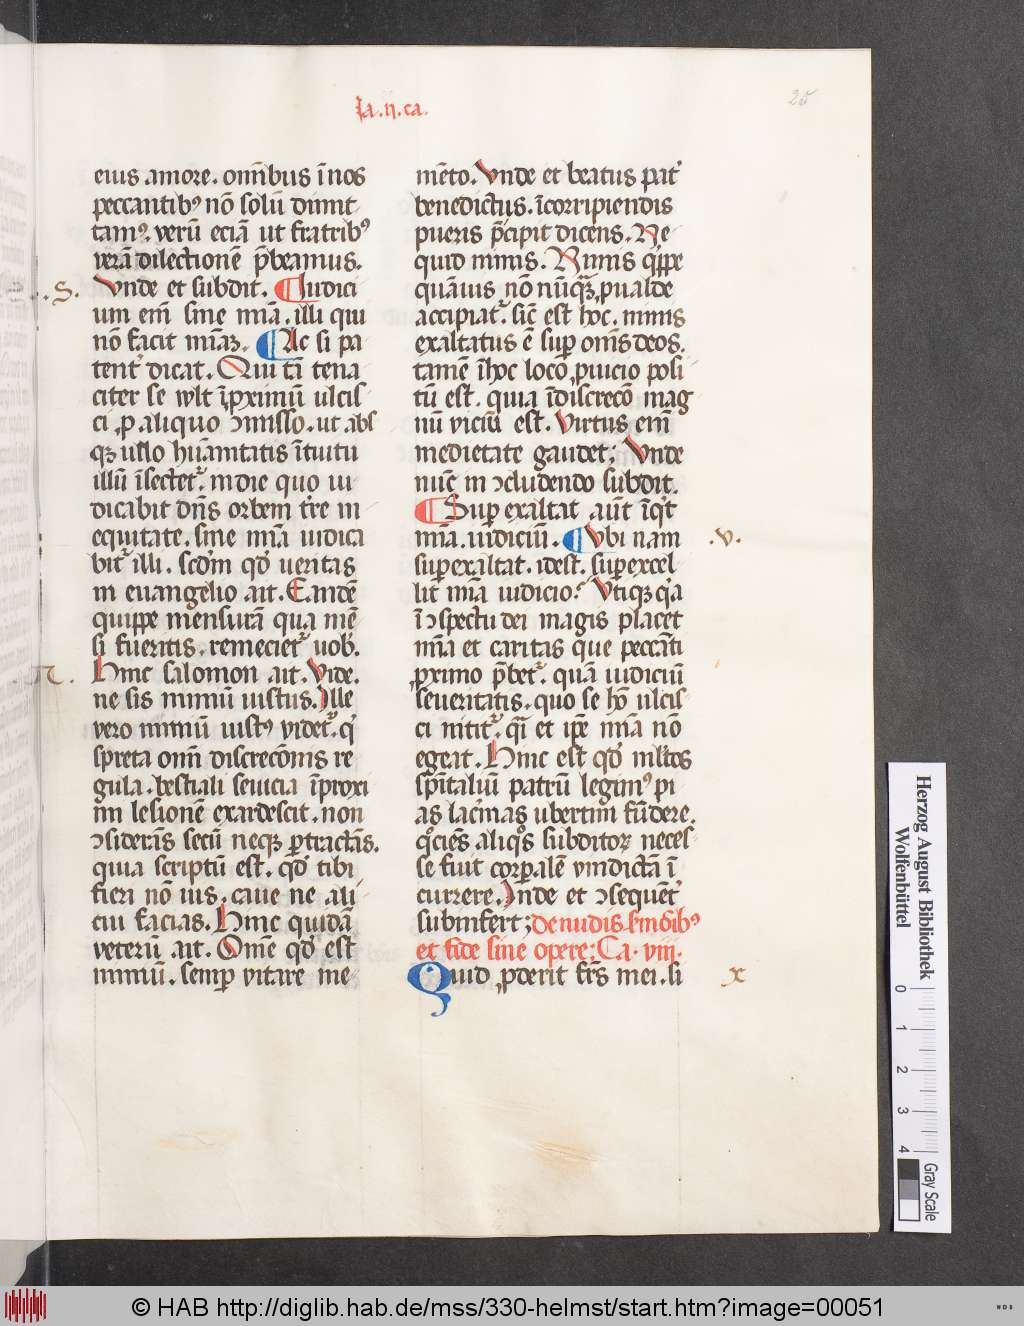 Ia.ii.ca.
25
eius amore. om̄ibus ī nos
peccantibꝰ nō solū dimit
tamꝰ. verū eciā ut fratribꝰ
verā dilectionē p̄beamus.
.S. Vnde et subdit. ¶ Iudici
um em̄ sine mīa. illi qui
nō facit mīaꝫ. ¶ Ac si pa
tent᷑ dicat. Qui tā tena
citer se wlt ī ꝓximū ulcis
ci ꝓ aliquo ↄmisso. ut abs
qꝫ ullo hūanitatis ītuitu
illū īsectet᷑. in die quo iu
dicabit dn̄s orbem t̄re in
equitate. sine mīa iudica
bit᷑ illi. scd̄m qd̓ ueritas
in euangelio ait. Eandē
quippe mensurā qua mē
si fueritis. remeciet᷑ uob̓.
.T. Hinc salomon ait. Vide.
ne sis nimiū iustus. Ille
vero nimiū iustꝰ videt᷑. qͥ
spreta om̄i discrecōnis re
gula. bestiali seuicia ī proxi
mi lesionē exardescit. non
ↄsiderās secū neqꝫ ꝑtractās.
quia scriptū est. qd̓ tibi
fieri nō uis. caue ne ali
cui facias. Hinc quidā
veterū ait. Om̄e qd̓ est
nimiū. semꝑ vitare me
mēto. Vnde et beatus pat᷑
benedictus. ī corripiendis
pueris p̄cipit dicens. Ne
quid nimis. Nimis qͥppe
quāuis nō nūqꝫ ꝓ ualde
accipiat᷑. sic̄ est hoc. nimis
exaltatus ē suꝑ om̄s deos.
tamē ī hoc loco ꝓ uicio posi
tū est. quia īdiscrecō mag
nū viciū est. Virtus em̄
medietate gaudet; Vnde
nūc in ↄcludendo subdit.
¶ Suꝑ exaltat aūt īqͥt
mīa. iudiciū. ¶ Vbi nam .v.
suꝑexaltat. idest. suꝑexcel
lit mīa iudicio? Vtiqꝫ qͥa
ī ↄspectu dei magis placet
mīa et caritas que peccāti
ꝓximo p̄bet᷑. quā iudiciū
seueritatis. quo se hō ulcis
ci nitit᷑. qͣi et ip̄e mīa nō
egeat. Hinc est qd̓ ml̓tos
sp̄italiū patrū legimꝰ pi
as lac̓mas ubertim fūdere.
qͦcies aliqͦs subditoꝝ neces
se fuit corꝑalē vindictā ī
currere. Inde et ↄsequēt᷑
subinfert; De nudis s̓monibꝰ
et fide sine opere; Ca. viii.
Quid ꝓderit fr̄s mei. si x
Herzog August Bibliothek
Wolfenbüttel
0 1 2 3 4
Gray Scale
© HAB http://diglib.hab.de/mss/330-helmst/start.htm?image=00051